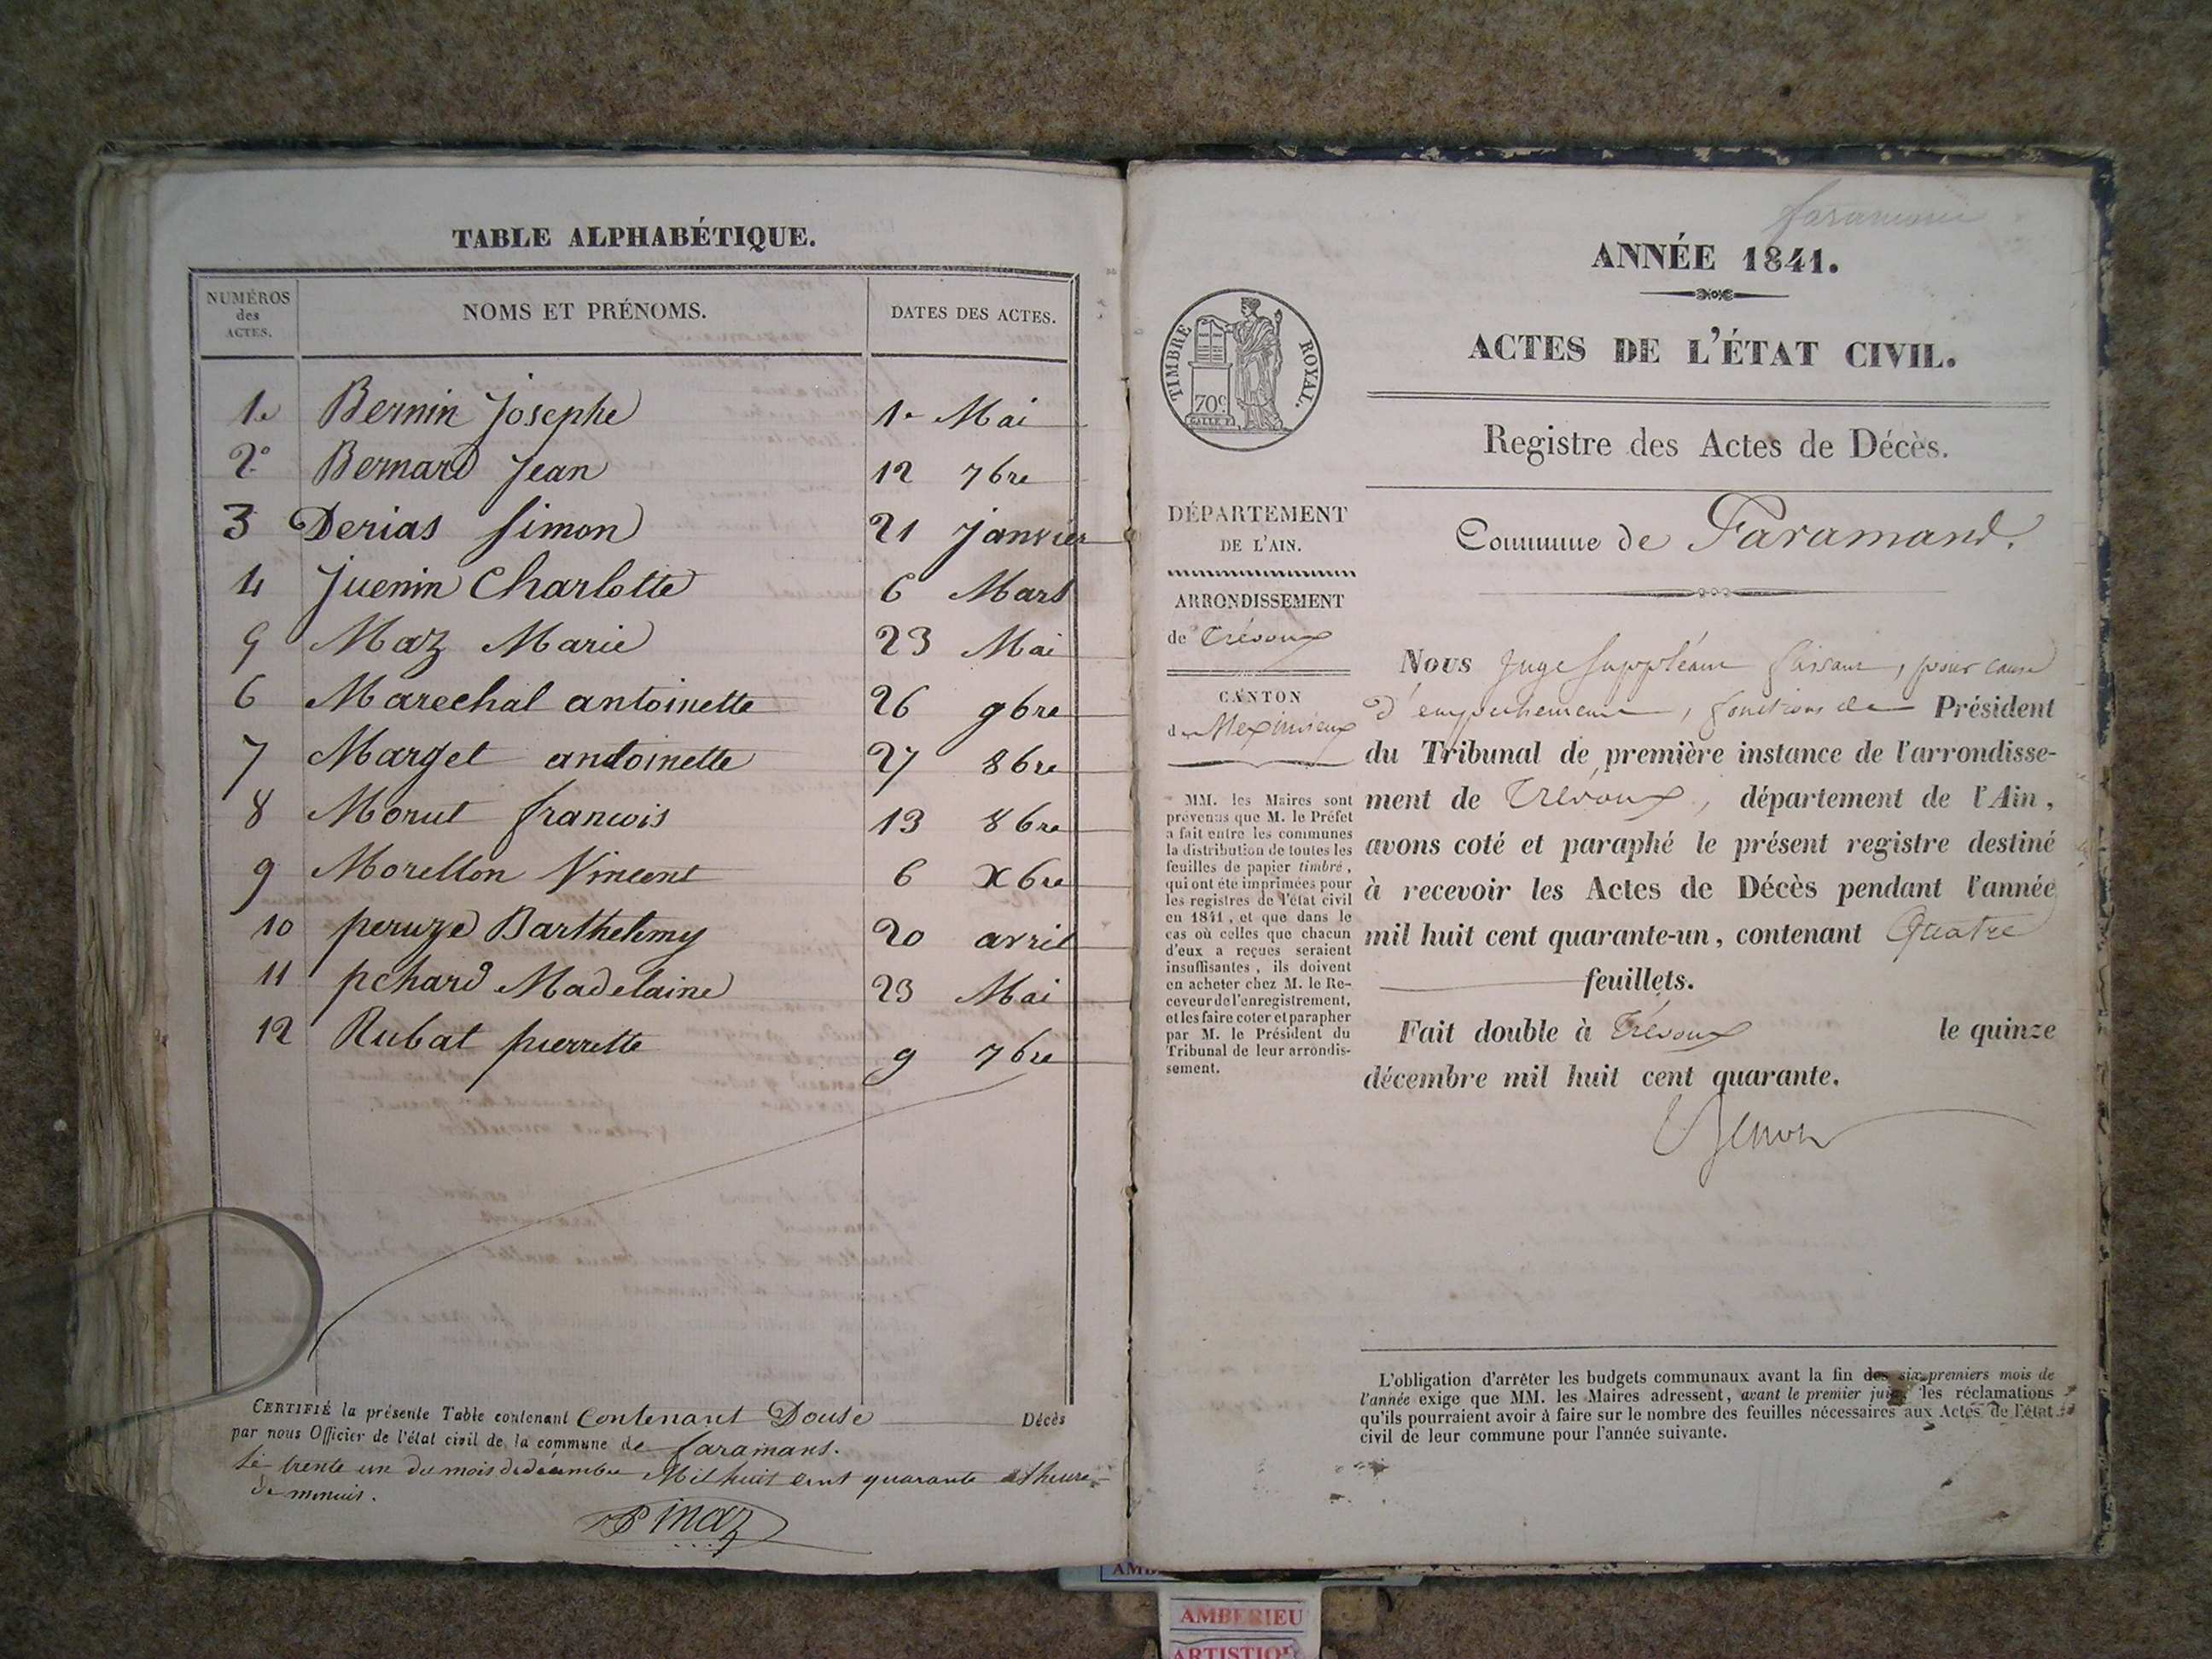 TABLE ALPHABÉTIQUE.
NUMÉROS des ACTES.
NOMS ET PRÉNOMS.
DATES DES ACTES.
1e Bernin Josephe 1e Mai
2o Bernard Jean 12 7bre
3 Derias Simon 21 Janvier
4 Juenin Charlotte 6 Mars
5 Maz Marie 23 Mai
6 Marechal antoinette 26 9bre
7 Marget antoinette 27 8bre
8 Morut francois 13 8bre
9 Morellon Vincent 6 X bre
10 peruze Barthelemy 20 avril
11 pchard Madelaine 23 Mai
12 Rubat pierrette 9 7bre
CERTIFIÉ la présente Table contenant Contenant Douse Décès
par nous Officier de l'état civil de la commune de faramans.
Le trente un du mois de décembre Mil huit cent quarante a l'heure
de minuit.
Pinaz
ANNÉE 1841.
ACTES DE L'ÉTAT CIVIL.
Registre des Actes de Décès.
Commune de Faramand.
TIMBRE ROYAL.
70c
DÉPARTEMENT
DE L'AIN.
ARRONDISSEMENT
de Trévoux
CANTON
de Meximieux
MM. les Maires sont
prévenus que M. le Préfet
a fait entre les communes
la distribution de toutes les
feuilles de papier timbré,
qui ont été imprimées pour
les registres de l'état civil
en 1841, et que dans le
cas où celles que chacun
d'eux a reçues seraient
insuffisantes, ils doivent
en acheter chez M. le Re-
ceveur de l'enregistrement,
et les faire coter et parapher
par M. le Président du
Tribunal de leur arrondis-
sement.
Nous Juge Suppléant faisant, pour cause
d'empechement, fonctions de Président
du Tribunal de première instance de l'arrondisse-
ment de Trévoux, département de l'Ain,
avons coté et paraphé le présent registre destiné
à recevoir les Actes de Décès pendant l'année
mil huit cent quarante-un, contenant Quatre
feuillets.
Fait double à Trévoux le quinze
décembre mil huit cent quarante.
L'obligation d'arrêter les budgets communaux avant la fin des six premiers mois de
l'année exige que MM. les Maires adressent, avant le premier juin, les réclamations
qu'ils pourraient avoir à faire sur le nombre des feuilles nécessaires aux Actes de l'état
civil de leur commune pour l'année suivante.
AMBERIEU